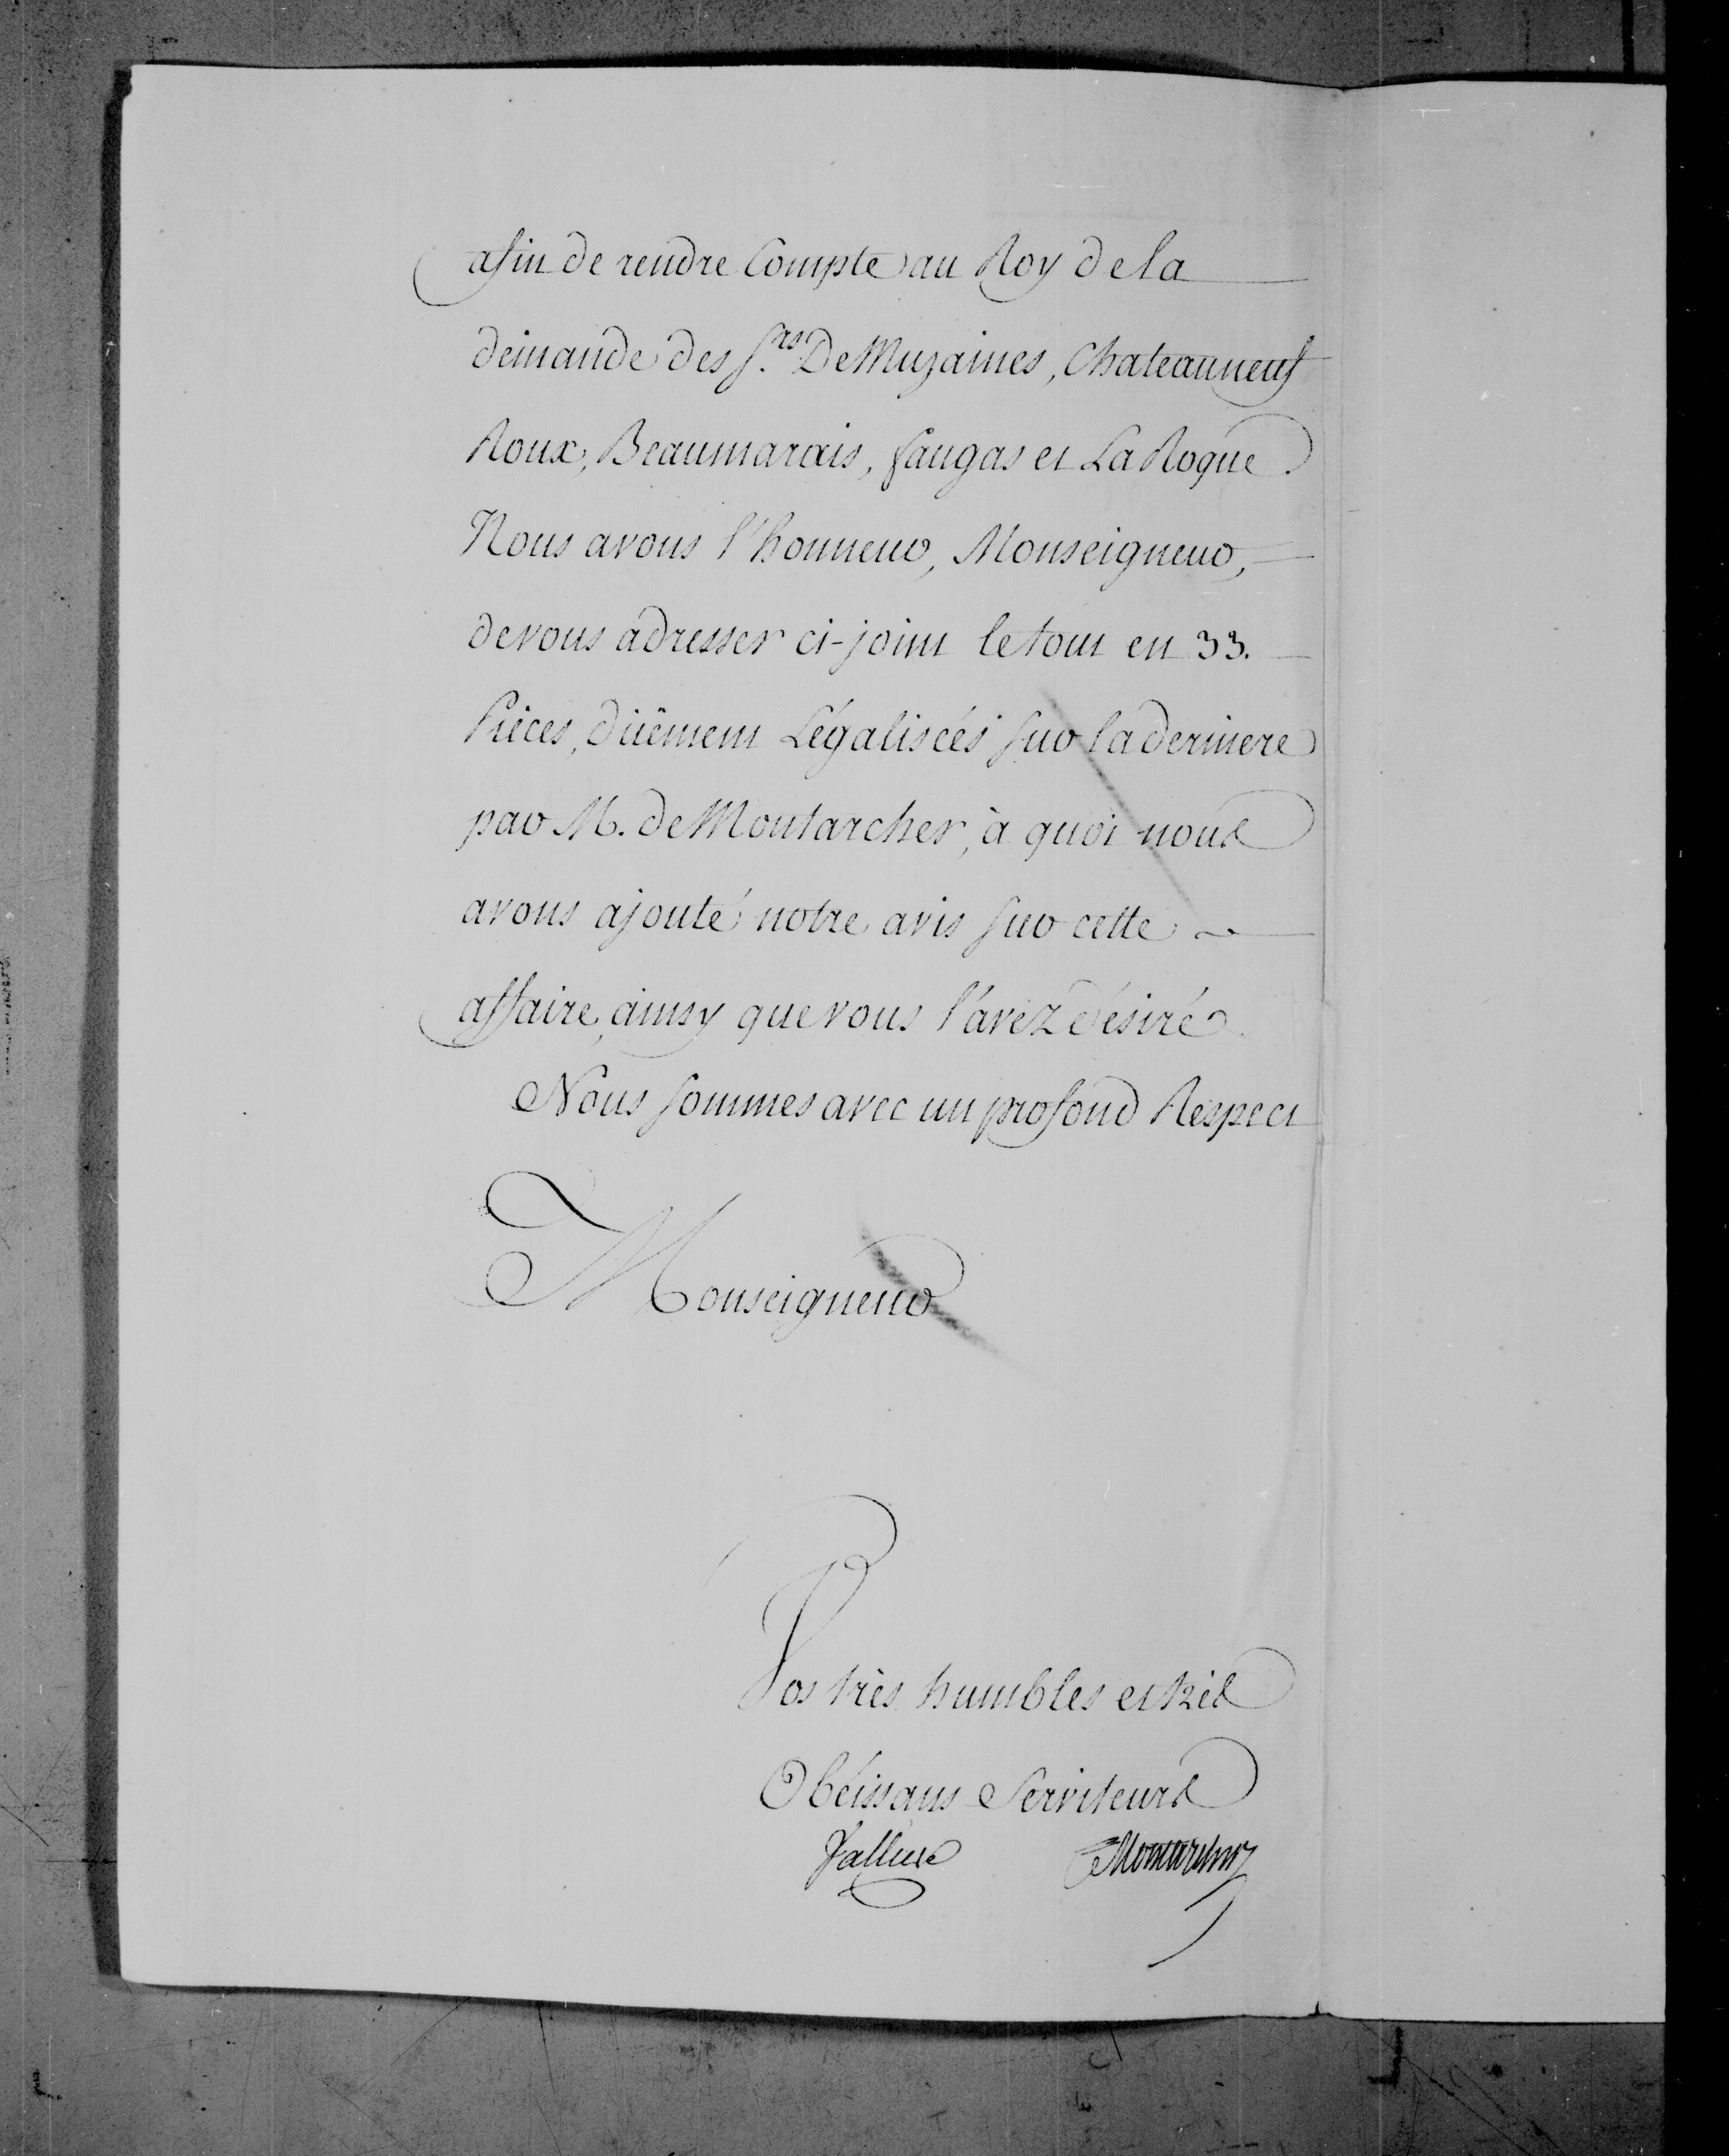 afin de rendre Compte au Roy de la
demande des S.rs De Muzaines, Chateauneuf
Roux, Beaumarais, faugas et La Roque.
Nous avons l'honneur, Monseigneur,
de vous adresser ci-joint le tout en 33.
Pièces, düêment Légalisées sur la derniere
par M. de Montarcher, à quoi nous
avons ajouté notre avis sur cette
affaire, ainsy que vous l'avez désiré.
Nous sommes avec un profond Respect
Monseigneur
Vos très humbles et très
Obéissans Serviteurs
Valliere Montarcher